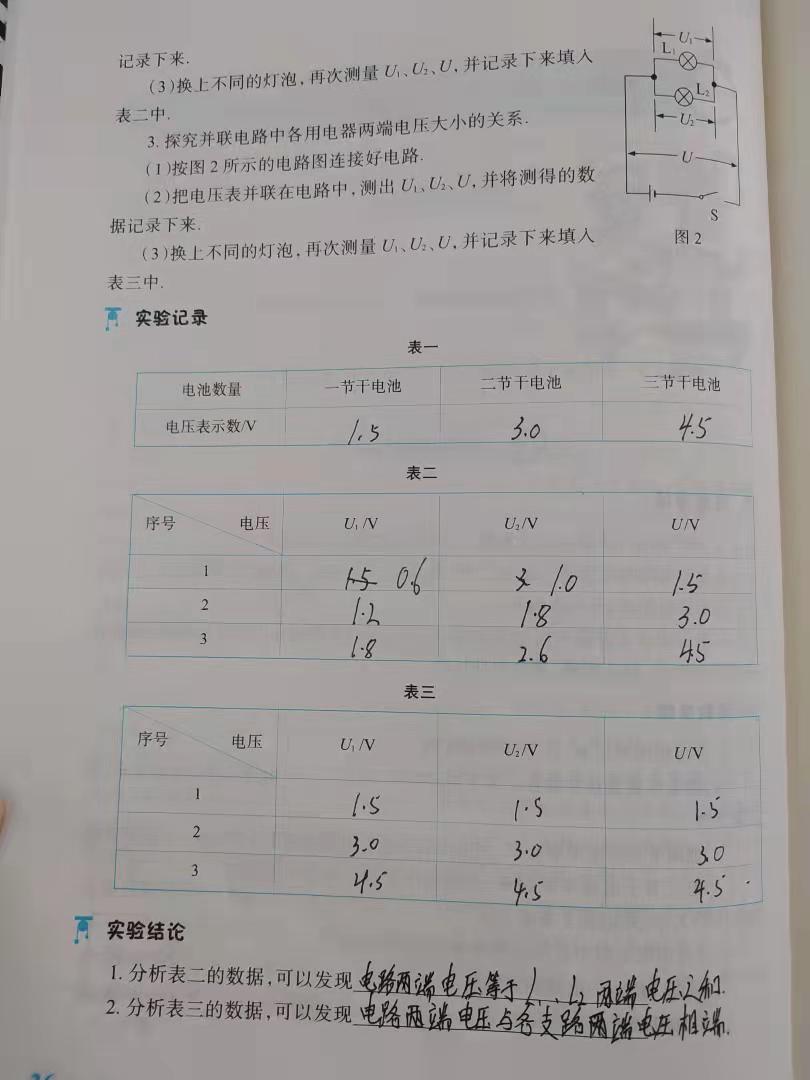 记录下来.
(3)换上不同的灯泡,再次测量 U₁、U₂、U,并记录下来填入
表二中.
3. 探究并联电路中各用电器两端电压大小的关系.
(1)按图 2 所示的电路图连接好电路.
(2)把电压表并联在电路中,测出 U₁、U₂、U,并将测得的数
据记录下来.
(3)换上不同的灯泡,再次测量 U₁、U₂、U,并记录下来填入
表三中.
U₁
L₁
L₂
U₂
U
S
图 2
实验记录
表一
电池数量 一节干电池 二节干电池 三节干电池
电压表示数/V 1.5 3.0 4.5
表二
序号 电压 U₁/V U₂/V U/V
1 1.5 0.6 1.0 1.5
2 1.2 1.8 3.0
3 1.8 2.6 4.5
表三
序号 电压 U₁/V U₂/V U/V
1 1.5 1.5 1.5
2 3.0 3.0 3.0
3 4.5 4.5 4.5
实验结论
1. 分析表二的数据,可以发现 电路两端电压等于L₁、L₂两端电压之和.
2. 分析表三的数据,可以发现 电路两端电压与各支路两端电压相端.